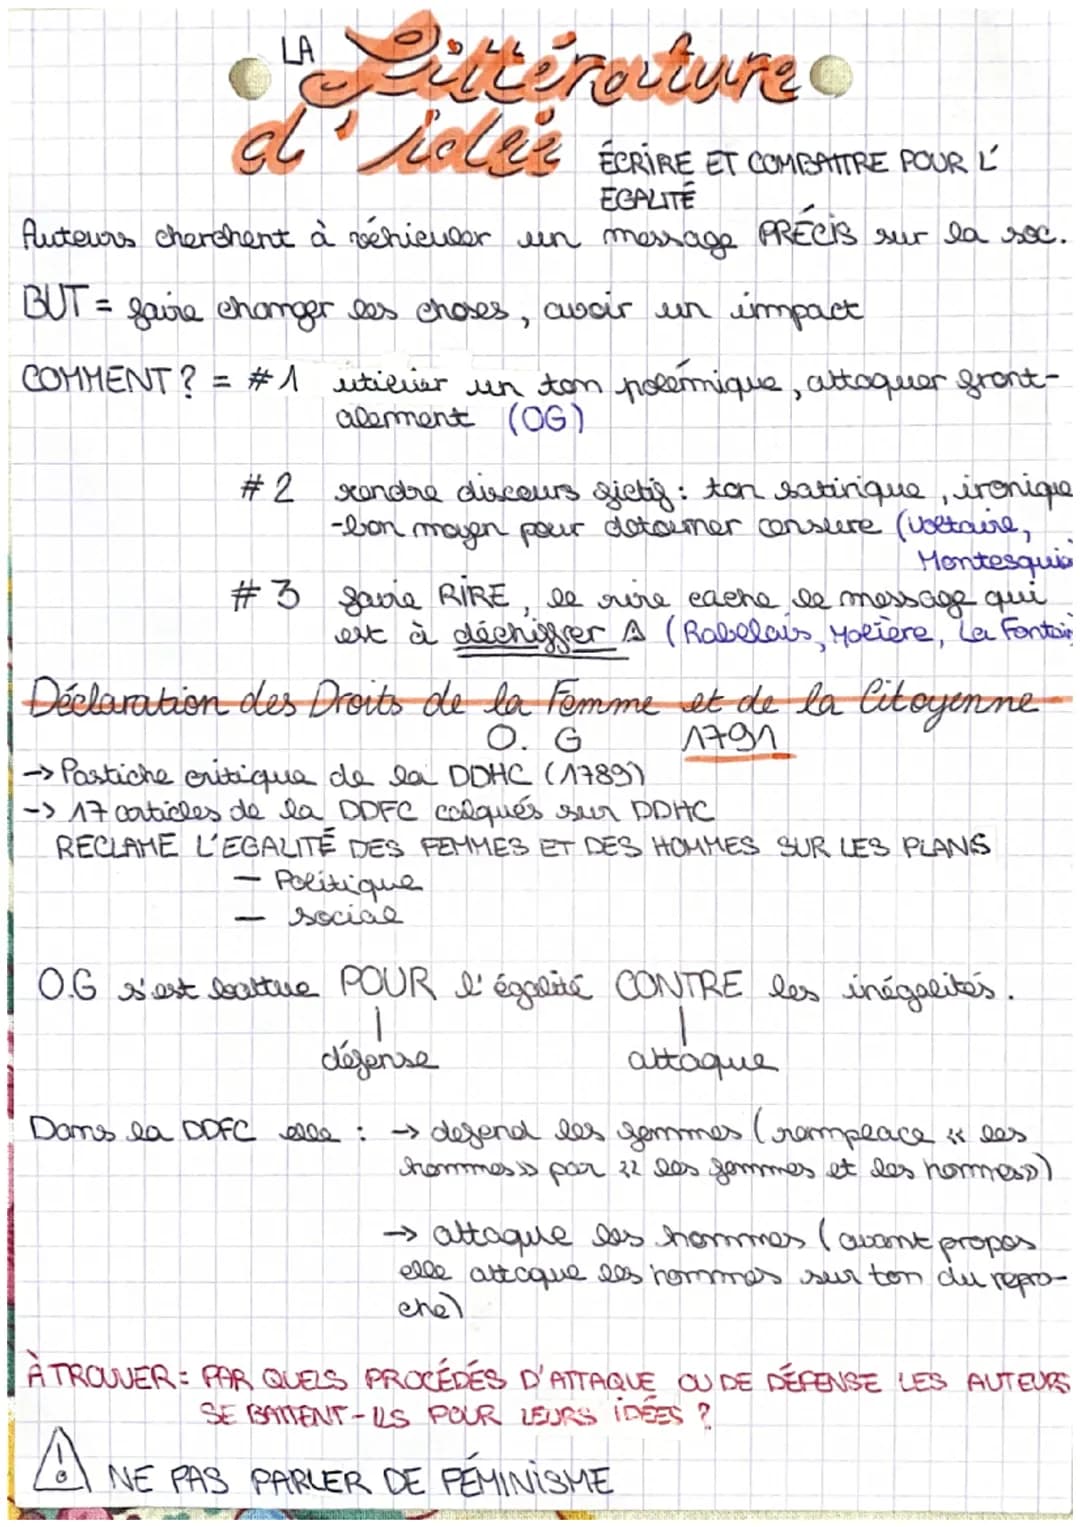 LA Littérature
d'idée ÉCRIRE ET COMBATTRE POUR L'
EGALITÉ
Auteurs cherchent à véhiculer un message PRÉCIS sur la soc.
BUT = faire changer les choses, avoir un impact
COMMENT ? = #1 utiliser un ton polémique, attaquer front-
alement (OG)
#2 rendre discours fictif : ton satirique, ironique
-bon moyen pour detourner censure (Voltaire,
Montesquie
#3 faire RIRE, le rire cache le message qui
est à déchiffrer (Rabelais, Molière, La Fontain
Déclaration des Droits de la Femme et de la Citoyenne
O. G 1791
-> Pastiche critique de la DDHC (1789)
-> 17 articles de la DDFC calqués sur DDHC
RECLAME L'EGALITÉ DES FEMMES ET DES HOMMES SUR LES PLANS
- Politique
- social
O.G s'est battue POUR l'égalité CONTRE les inégalités.
défense attaque
Dans la DDFC elle : -> defend les femmes (remplace « les
hommes » par « les femmes et les hommes »)
-> attaque les hommes (avant propos
elle attaque les hommes sur ton du repro-
che)
À TROUVER : PAR QUELS PROCÉDÉS D'ATTAQUE OU DE DÉFENSE LES AUTEURS
SE BATTENT-ILS POUR LEURS IDÉES ?
! NE PAS PARLER DE FÉMINISME